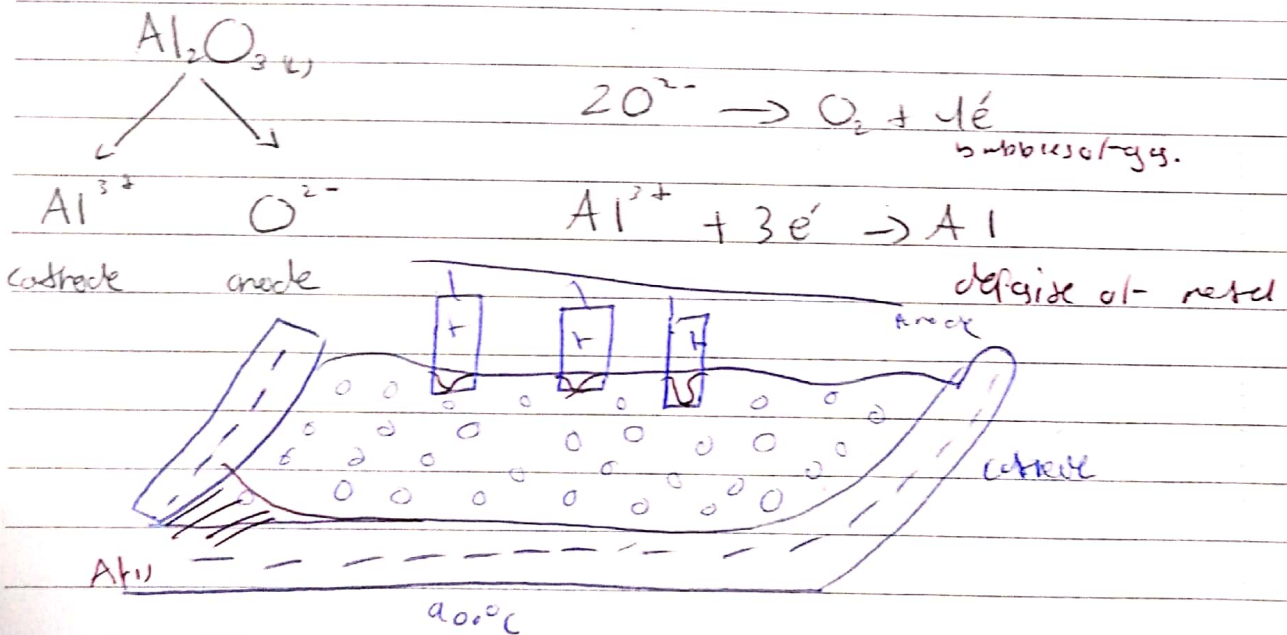 Al₂O₃ (l)
2O²⁻ → O₂ + 4é
bubbles of gas.
Al³⁺ O²⁻ Al³⁺ + 3é → Al
cathode anode
of metal
Anode
+ + +
cathode
900°C